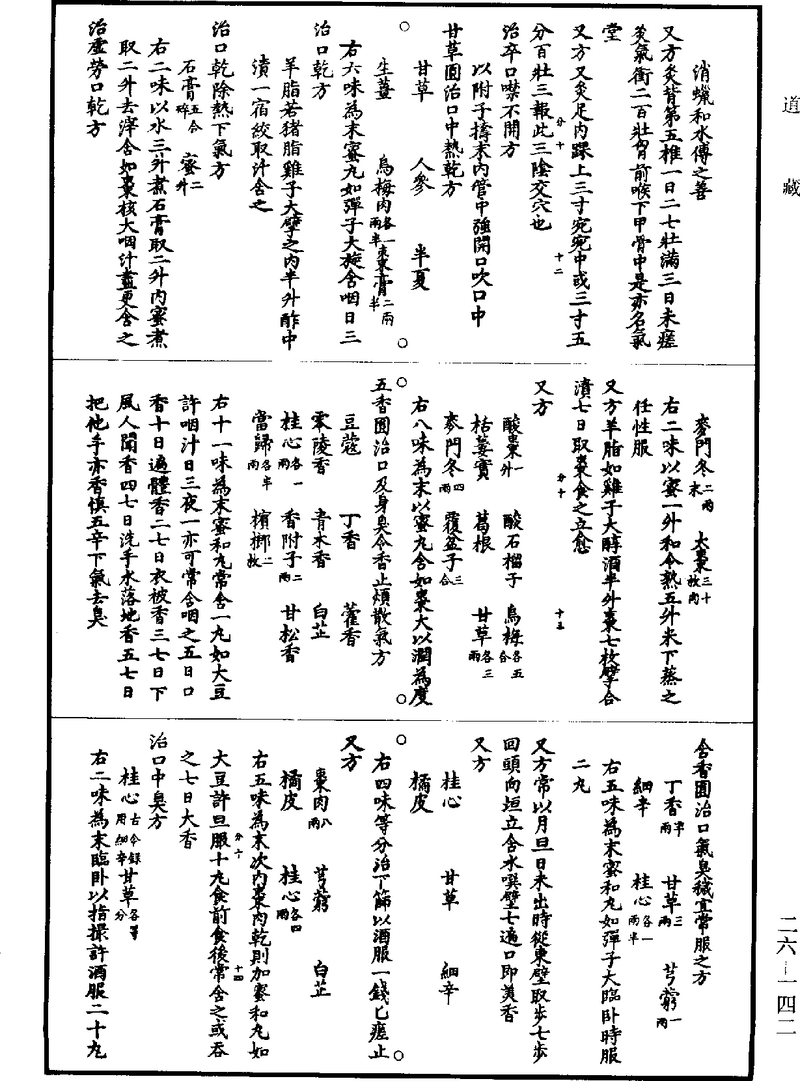 道藏
消蠟和水傅之善
又方灸背第五椎一日二七壯滿三日未瘥
灸氣衝二百壯胷前喉下甲骨中是亦名氣
堂
又方又灸足内踝上三寸宛宛中或三寸五
分百壯三報此三陰交穴也
治卒口噤不開方
以附子擣末内管中強開口吹口中
甘草圓治口中熱乾方
甘草 人參 半夏
生薑 烏梅肉各一兩半 棗膏二兩半
右六味為末蜜丸如彈子大旋含咽日三
治口乾方
羊脂若猪脂雞子大擘之内半升酢中
漬一宿絞取汁含之
治口乾除熱下氣方
石膏五合碎 蜜二升
右二味以水三升煮石膏取二升内蜜煮
取二升去滓含如棗核大咽汁盡更含之
治虛勞口乾方
麥門冬二兩末 大棗三十枚肉
右二味以蜜一升和令熟五升米下蒸之
任性服
又方羊脂如雞子大醇酒半升棗七枚擘合
漬七日取棗食之立愈
又方
酸棗一升 酸石榴子 烏梅各五合
栝蔞實 葛根 甘草各三兩
麥門冬四兩 覆盆子三合
右八味為末以蜜丸含如棗大以潤為度
五香圓治口及身臭令香止煩散氣方
豆蔻 丁香 藿香
零陵香 青木香 白芷
桂心各一兩 香附子二兩 甘松香
當歸各半兩 檳榔二枚
右十一味為末蜜和丸常含一丸如大豆
許咽汁日三夜一亦可常含咽之五日口
香十日遍體香二七日衣被香三七日下
風人聞香四七日洗手水落地香五七日
把他手亦香慎五辛下氣去臭
含香圓治口氣臭穢宜常服之方
丁香半兩 甘草三兩 芎藭一兩
細辛 桂心各一兩半
右五味為末蜜和丸如彈子大臨卧時服
二丸
又方常以月旦日未出時從東壁取步七步
回頭向垣立含水噀壁七遍口即美香
又方
桂心 甘草 細辛
橘皮
右四味等分治下篩以酒服一錢匕瘥止
又方
棗肉八兩 芎藭 白芷
橘皮 桂心各四兩
右五味為末次内棗肉乾則加蜜和丸如
大豆許旦服十丸食前食後常含之或吞
之七日大香
治口中臭方
桂心古今録用細辛 甘草各等分
右二味為末臨卧以三指撮許酒服二十九
二六-一四二